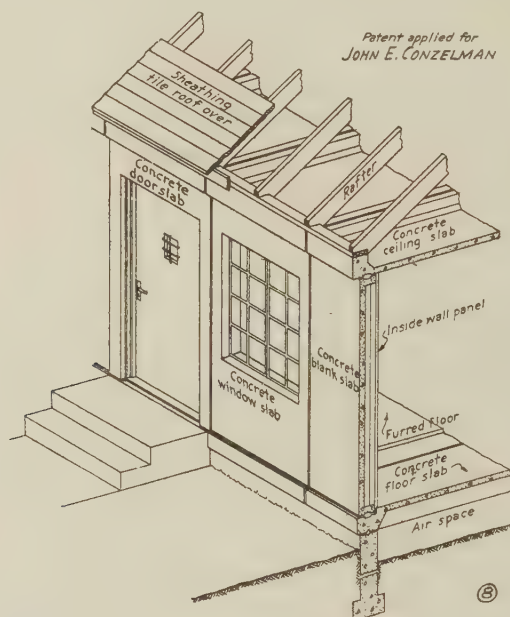 Patent applied for
JOHN E. CONZELMAN
Sheathing
tile roof over
Rafter
Concrete
door slab
Concrete
ceiling slab
Inside wall panel
Concrete
blank slab
Concrete
window slab
Furred floor
Concrete
floor slab
Air space
8